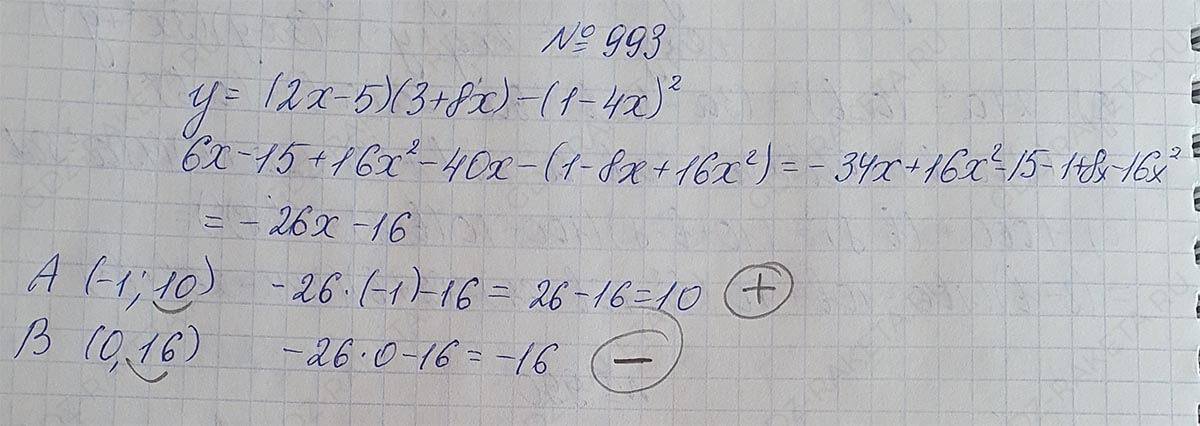 № 993
y = (2x-5)(3+8x)-(1-4x)²
6x-15+16x²-40x-(1-8x+16x²)=-34x+16x²-15-1+8x-16x²
= -26x-16
A (-1; 10) -26·(-1)-16 = 26-16=10 +
B (0, 16) -26·0-16 = -16 −